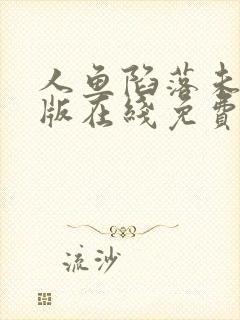 人鱼陷落未
版在綫免費
流沙